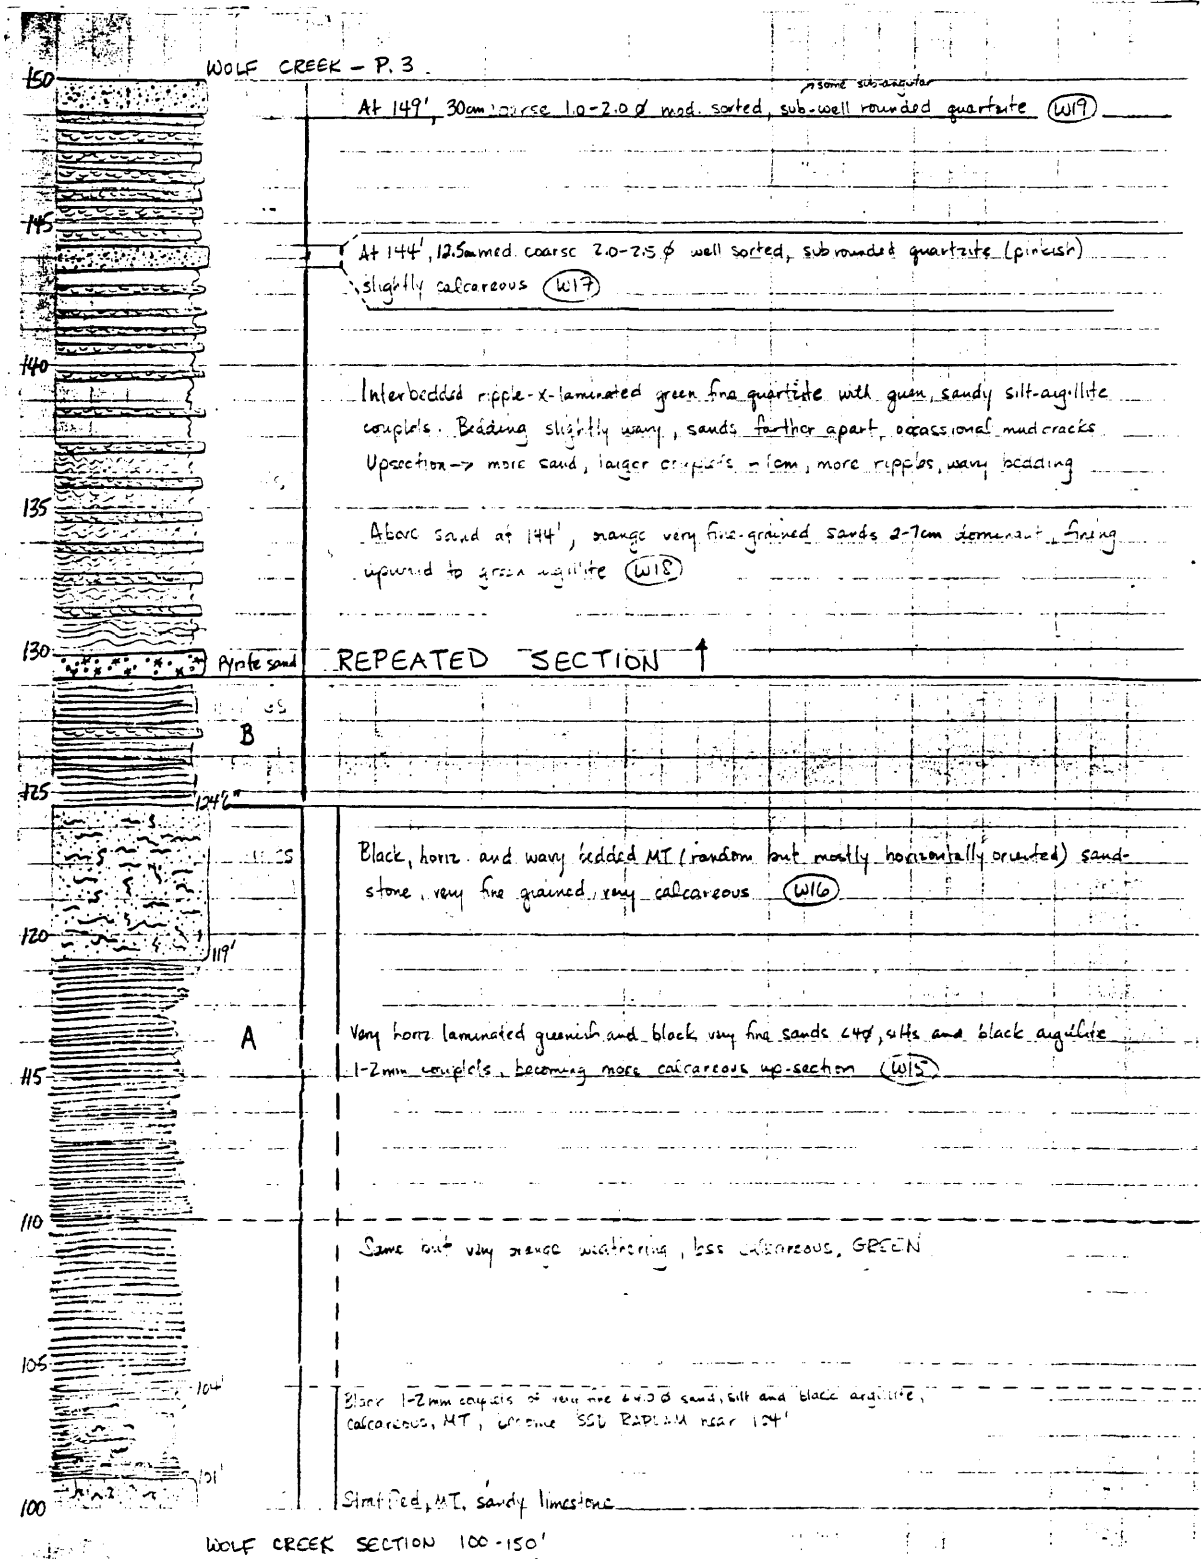 WOLF CREEK - P. 3
150
↗ some sub-angular
At 149', 30cm coarse 1.0-2.0 ø mod. sorted, sub-well rounded quartzite (W19)
145
At 144', 12.5cm med. coarse 2.0-2.5 ø well sorted, subrounded quartzite (pinkish)
slightly calcareous (W17)
140
Interbedded ripple-x-laminated green fine quartzite with green, sandy silt-argillite
couplets. Bedding slightly wavy, sands farther apart, occassional mudcracks
Upsection -> more sand, larger couplets ~1cm, more ripples, wavy bedding
135
Above sand at 144', orange very fine-grained sands 2-7cm dominant, fining
upward to green argillite (W18)
130
Pyrite sand
REPEATED SECTION ↑
B
125
124'2"
Black, horiz. and wavy bedded MT (random but mostly horizontally oriented) sand-
stone, very fine grained, very calcareous (W16)
120
119'
A
Very horiz laminated greenish and black very fine sands <4ø, silts and black argillite
1-2mm couplets, becoming more calcareous up-section (W15)
115
110
Same but very orange weathering, less calcareous, GREEN
105
104'
Black 1-2mm couplets of very fine <4.0 ø sand, silt and black argillite,
calcareous, MT, become SSL near 104'
101'
100
Stratified, MT, sandy limestone
WOLF CREEK SECTION 100-150'